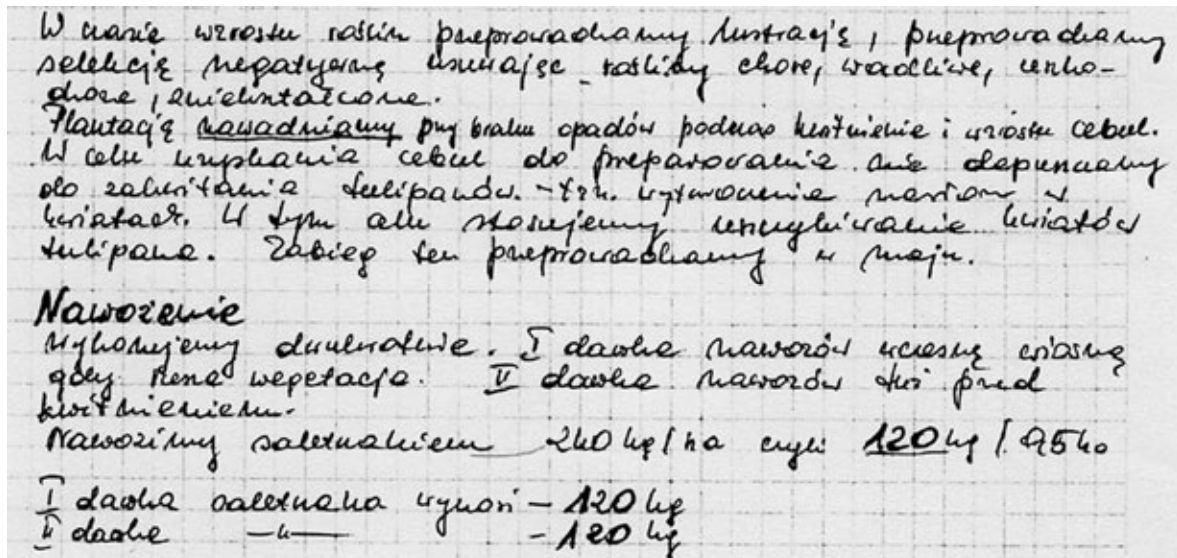 W czasie wzrostu roślin przeprowadzamy lustrację, przeprowadzamy
selekcję negatywną usuwając rośliny chore, wadliwe, uszko-
dzone, zniekształcone.
Plantację nawadniamy przy braku opadów podczas kwitnienie i wzrostu cebul.
W celu uzyskania cebul do preparowania nie dopuszczamy
do zakwitania tulipanów. - tzn. wytworzenia nasion w
kwiatach. W tym celu stosujemy uszczykiwanie kwiatów
tulipana. Zabieg ten przeprowadzamy w maju.
Nawożenie
Wykonujemy dwukrotnie. I dawka nawozów wczesną wiosną
gdy rusza wegetacja. II dawka nawozów tuż przed
kwitnieniem.
Nawozimy saletrzakiem 240 kg/ha czyli 120 kg / 0,5 ha
I dawka saletrzaka wynosi - 120 kg
II dawka —"— - 120 kg